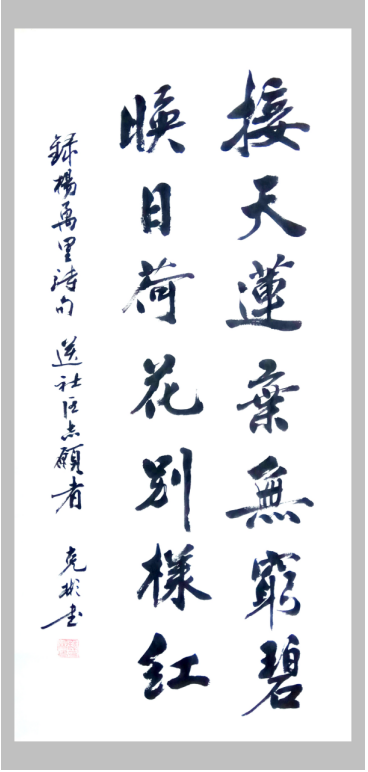 接天蓮葉無窮碧
暎日荷花別樣紅
録楊萬里詩句 送社区志願者 克彬书